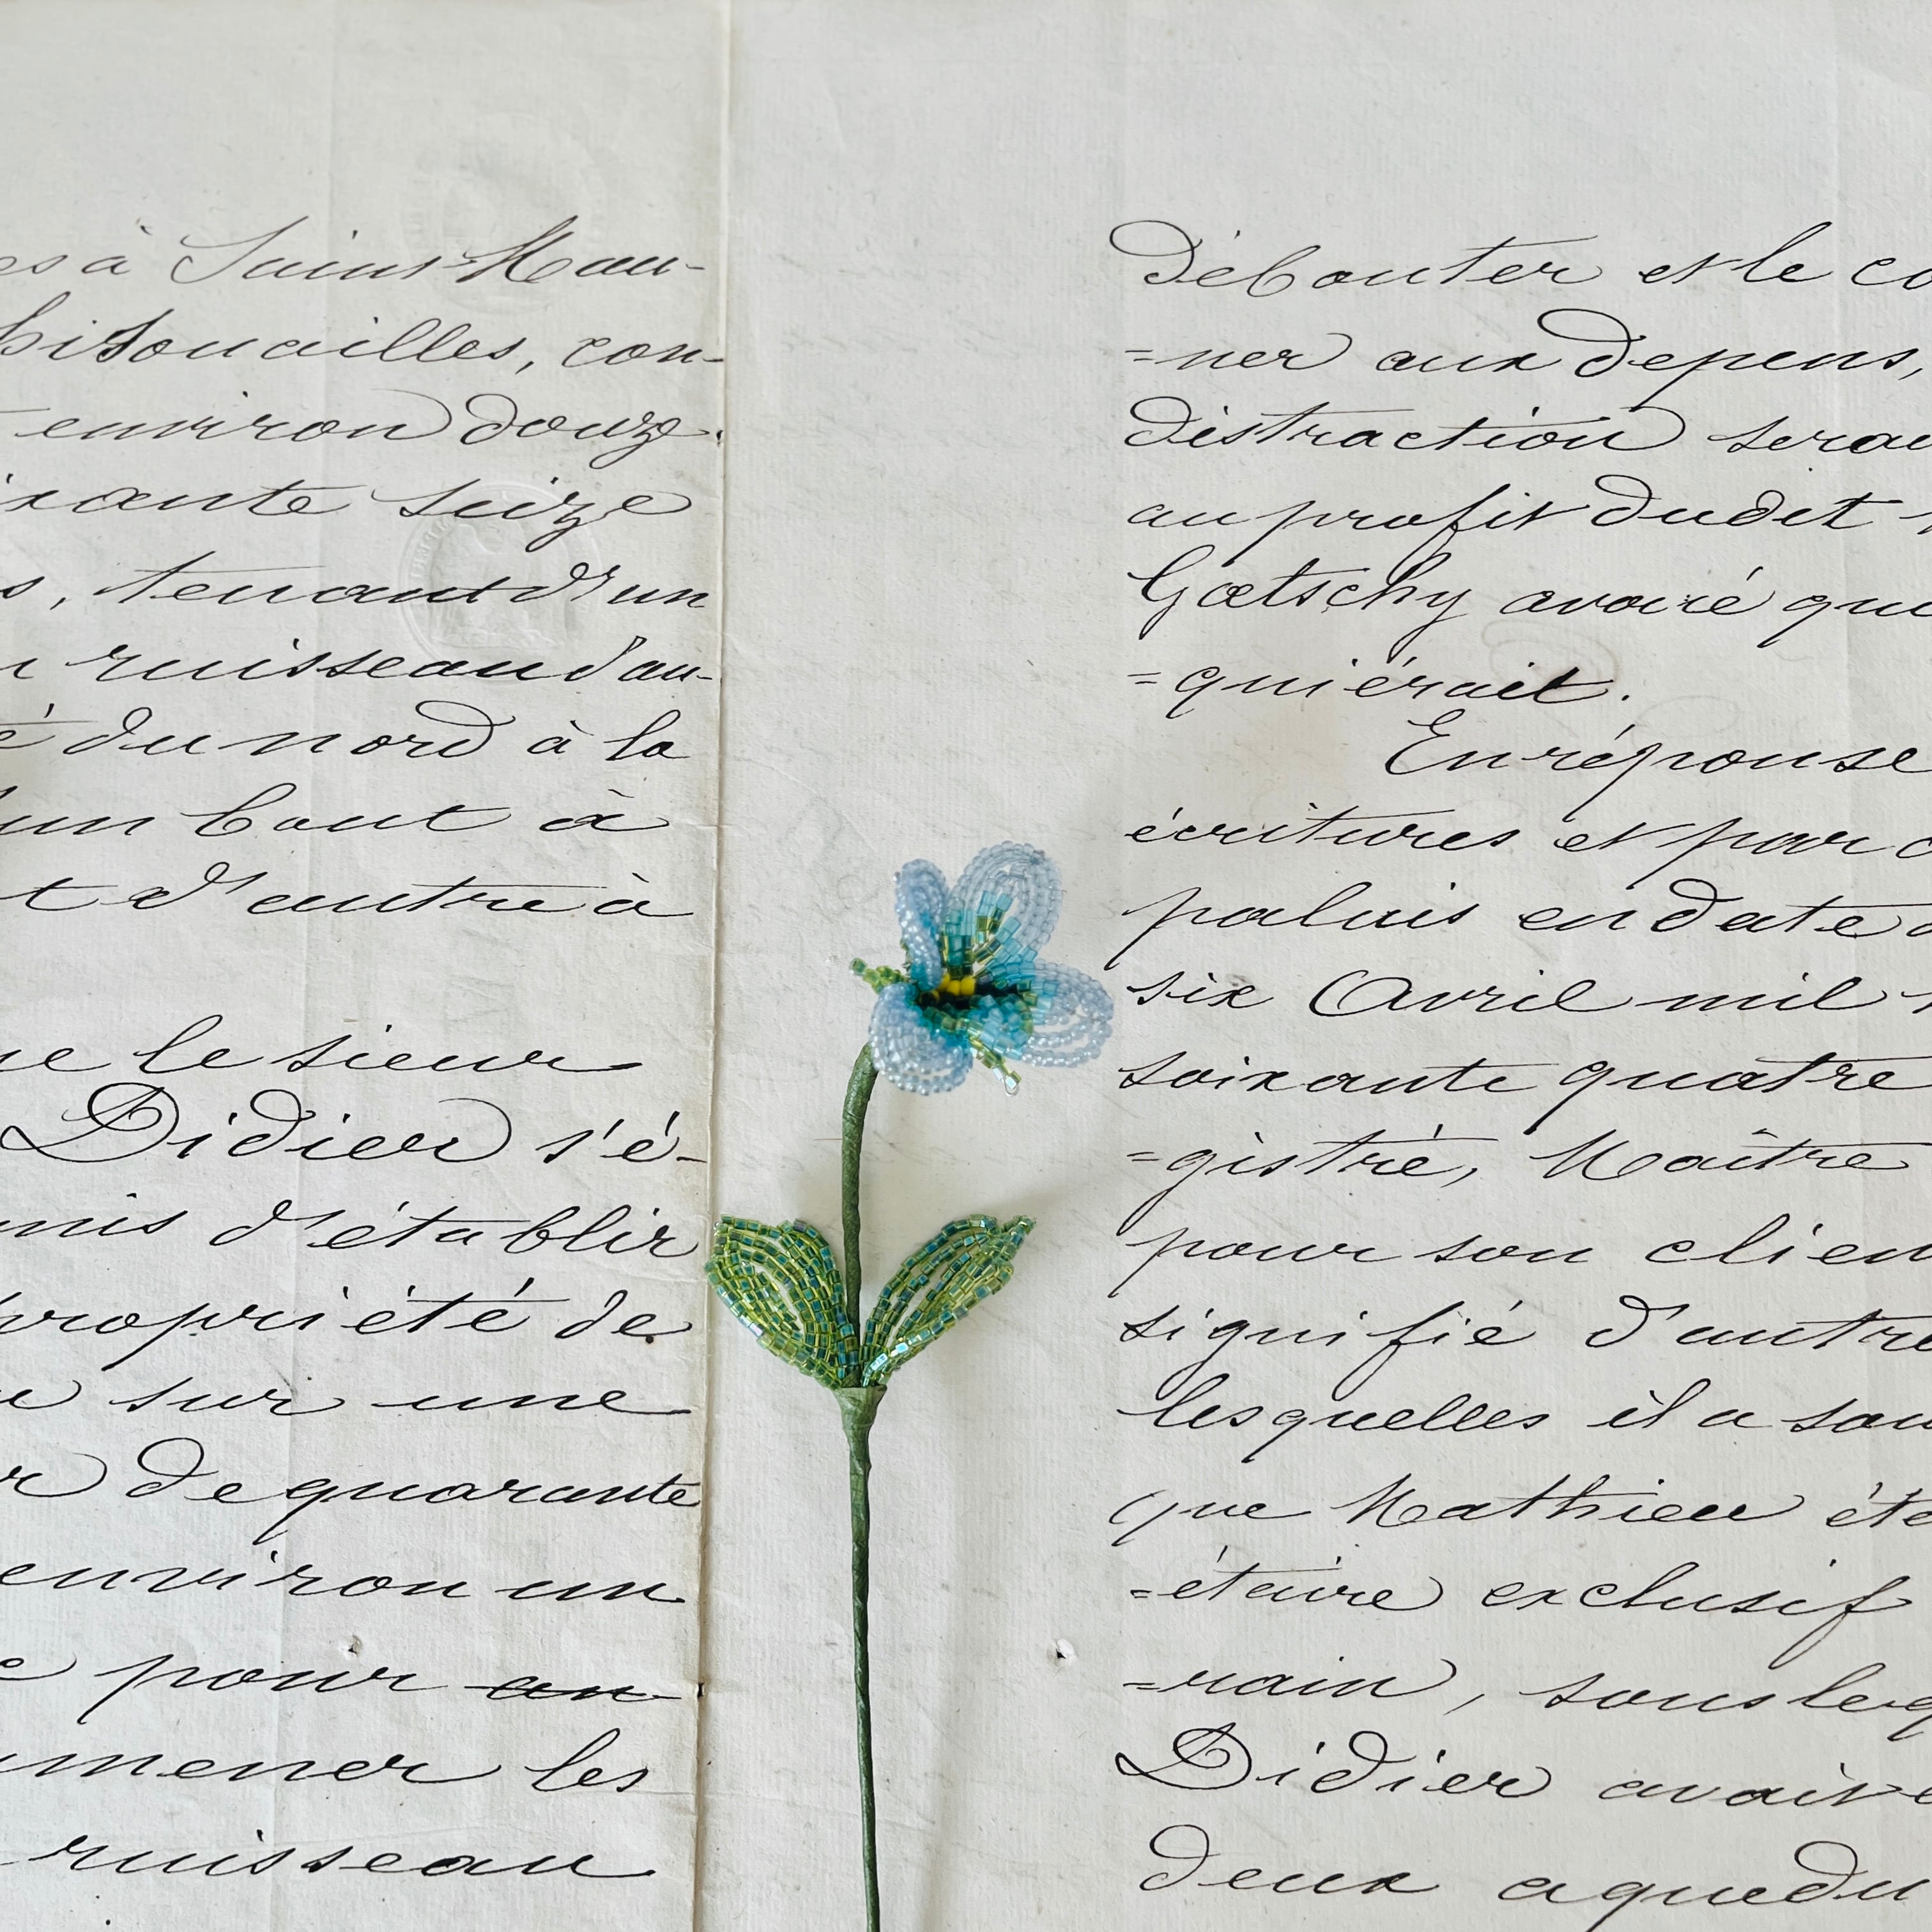 es à Saint-Mau-
environ douze
ixante seize
s, tenant d'un
ruisseau d'au-
é du nord à la
un bout à
t d'autre à
ue le sieur
Didier s'é-
mis d'établir
propriété de
sur une
r de quarante
environ un
pour an-
mener les
ruisseau
Débouter et le co
=ner aux dépens,
distraction serai
au profit dudit
Gœtschy avoué qu
=quiérait.
En réponse
écritures et par
palais en date
six Avril mil
soixante quatre
=gistré, Maître
pour son clien
signifié d'autre
lesquelles il a sou
que Mathieu éta
=étaire exclusif
=rain, sous leq
Didier avait
deux aquedu